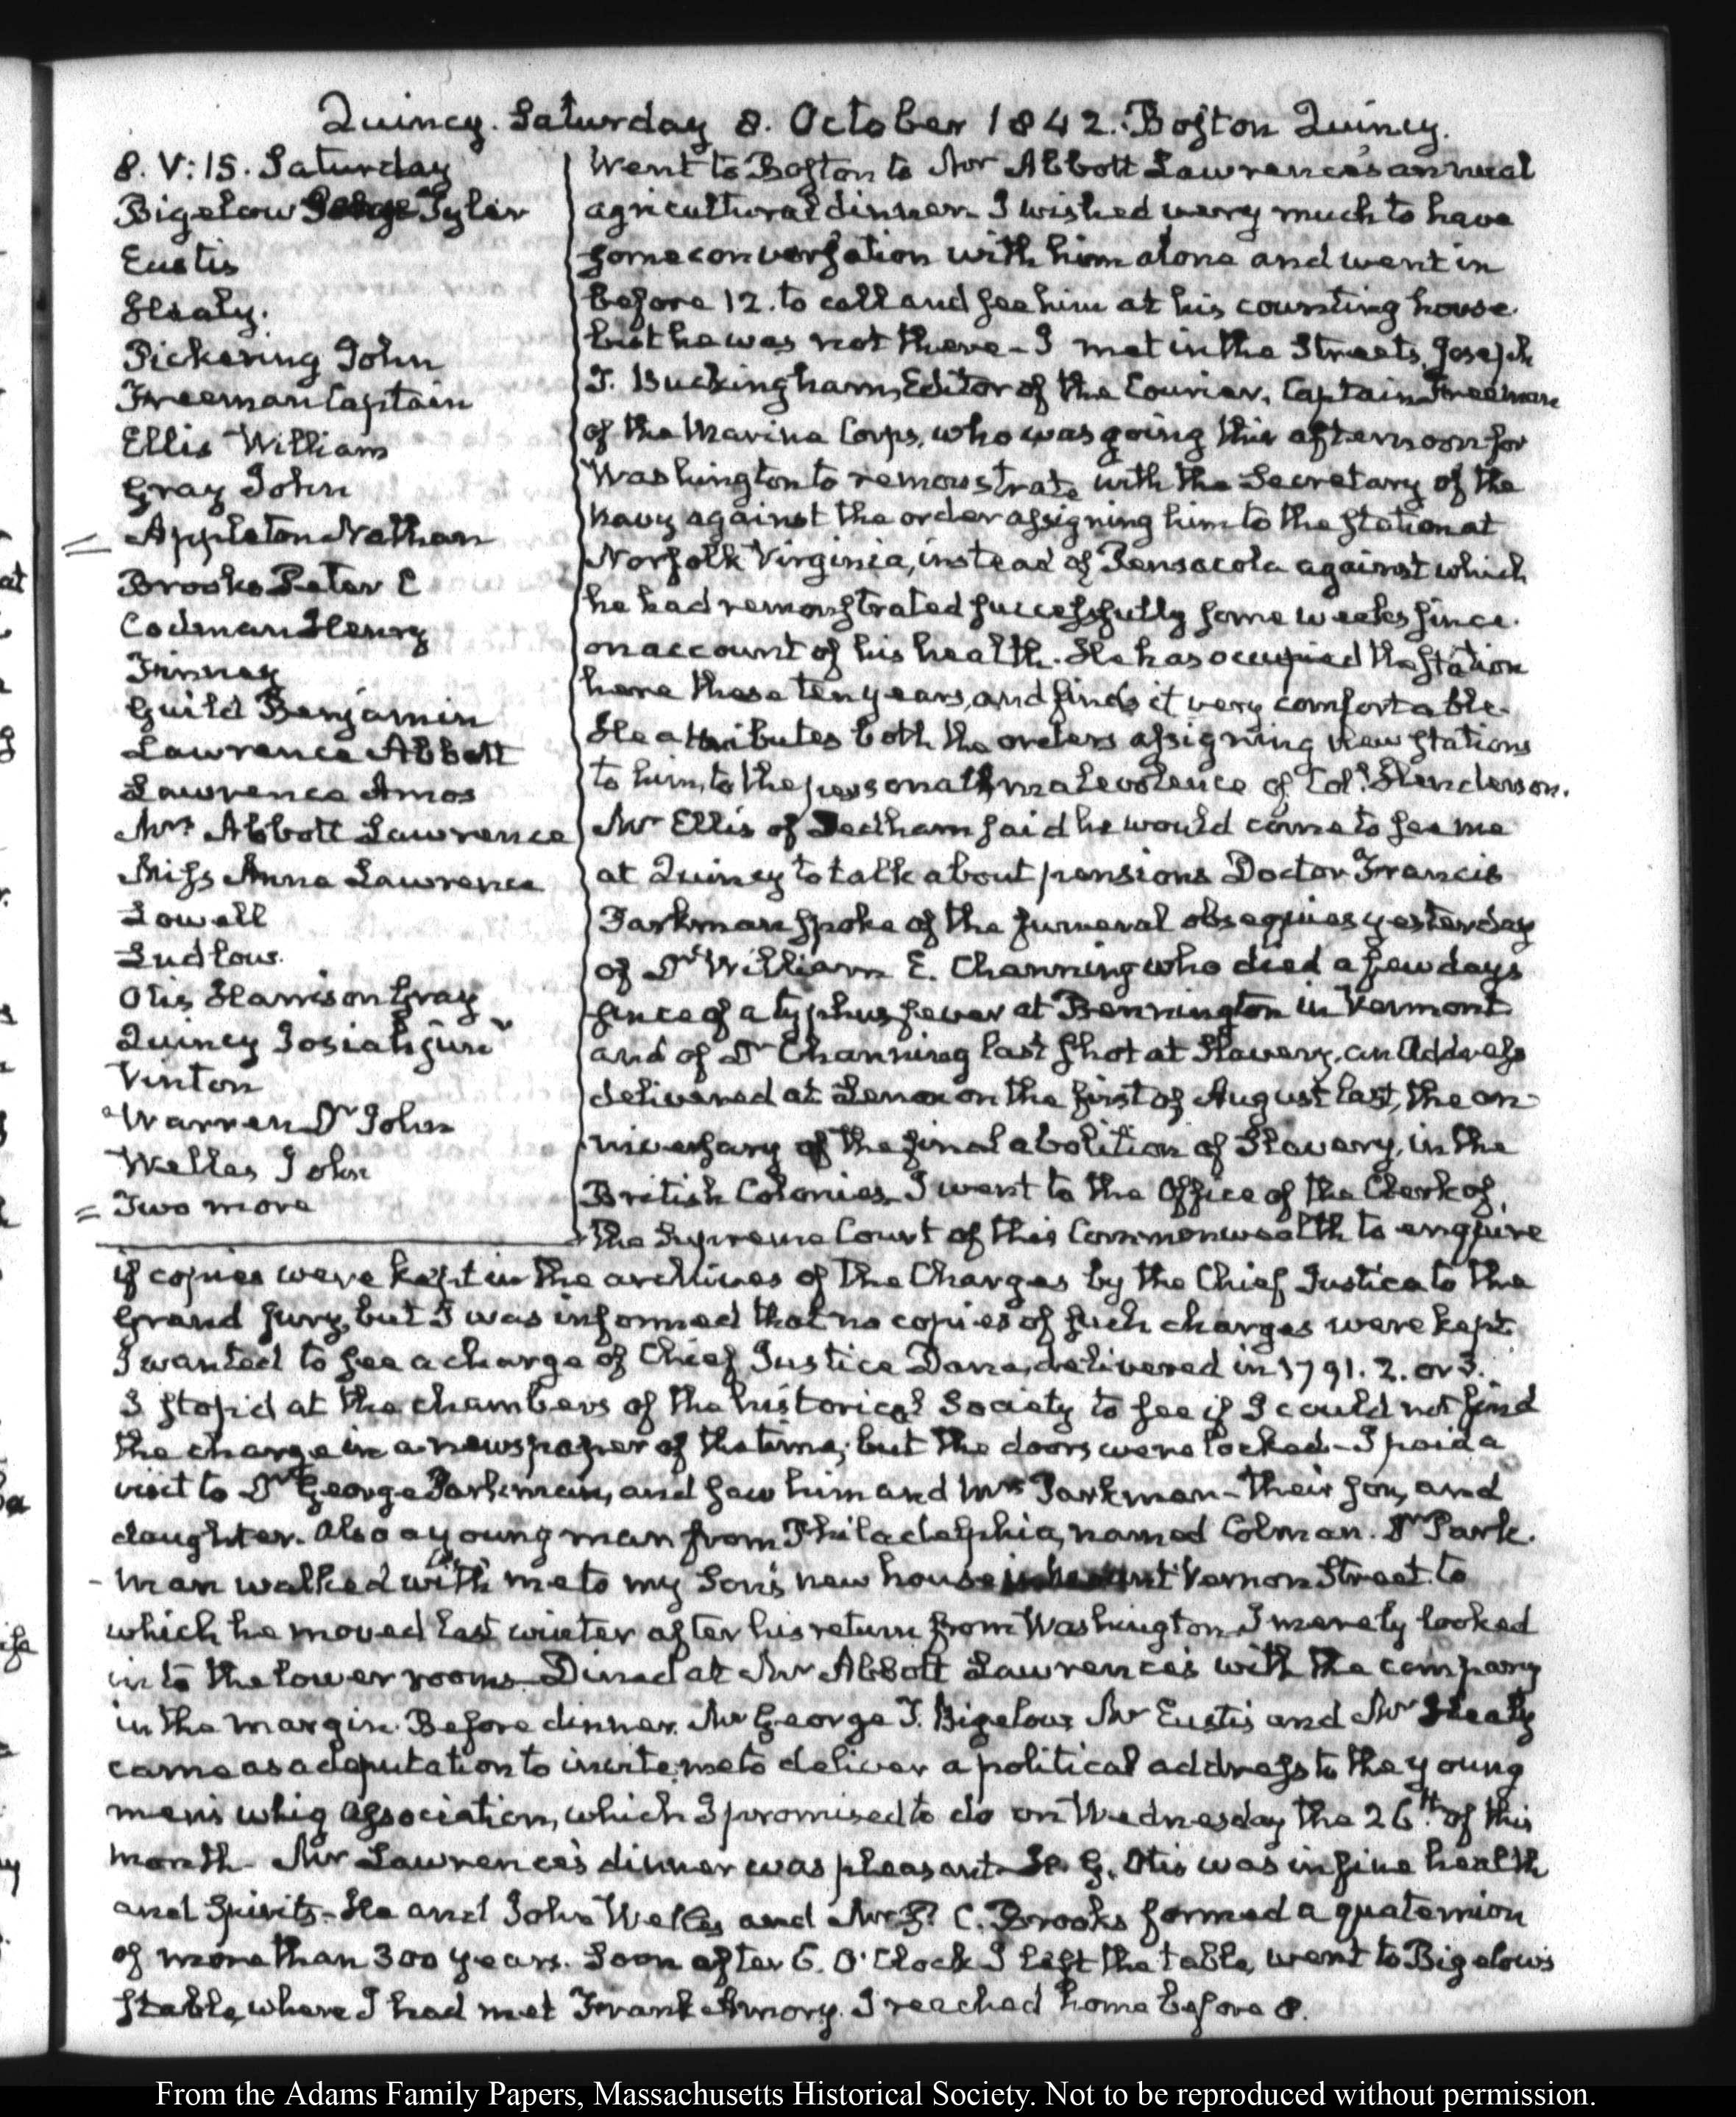 Quincy. Saturday 8. October 1842. Boston Quincy.
8. V:15. Saturday
Bigelow George Tyler
Eustis
Healy.
Pickering John
Freeman Captain
Ellis William
Gray John
Appleton Nathan
Brooks Peter C
Codman Henry
Finney
Guild Benjamin
Lawrence Abbott
Lawrence Amos
Mrs Abbott Lawrence
Miss Anna Lawrence
Lowell
Ludlow.
Otis Harrison Gray
Quincy Josiah junr
Vinton
Warren Dr John
Welles John
= Two more
Went to Boston to Mr Abbott Lawrence's annual
agricultural dinner. I wished very much to have
some conversation with him alone and went in
before 12. to call and see him at his counting house.
but he was not there - I met in the Streets, Joseph
T. Buckingham, Editor of the Courier, Captain Freeman
of the Marine Corps, who was going this afternoon for
Washington to remonstrate with the Secretary of the
Navy against the order assigning him to the station at
Norfolk Virginia, instead of Pensacola against which
he had remonstrated successfully some weeks since.
on account of his health. He has occupied the station
here these ten years, and finds it very comfortable.
He attributes both the orders assigning new stations
to him, to the personal malevolence of Col. Henderson.
Mr Ellis of Dedham said he would come to see me
at Quincy to talk about pensions Doctor Francis
Parkman spoke of the funeral obsequies yesterday
of Dr William E. Channing who died a few days
since of a typhus fever at Bennington in Vermont
and of Dr Channing last shot at Slavery, an Address
delivered at Lenox on the first of August last, the an-
niversary of the final abolition of Slavery, in the
British Colonies I went to the Office of the Clerk of
the Supreme Court of this Commonwealth to enquire
if copies were kept in the archives of the Charges by the Chief Justice to the
Grand Jury, but I was informed that no copies of such charges were kept.
I wanted to see a charge of Chief Justice Dana, delivered in 1791. 2. or 3.
I stop'd at the chambers of the historical Society to see if I could not find
the charge in a newspaper of the time; but the doors were locked - I paid a
visit to Dr George Parkman, and saw him and Mrs Parkman - their son, and
daughter. Also a young man from Philadelphia, named Colman. Dr Park-
man walked with me to my Son's new house Mount Vernon Street. to
which he moved last winter after his return from Washington I merely looked
in to the lower rooms - Dined at Mr Abbott Lawrence's with the company
in the margin. Before dinner. Mr George T. Bigelow Mr Eustis and Mr Healy
came as a deputation to invite me to deliver a political address to the young
men's whig Association, which I promised to do on Wednesday the 26th of this
month - Mr Lawrence's dinner was pleasant - H. G. Otis was in fine health
and Spirits - He and John Welles and Mr P. C. Brooks formed a quaternion
of more than 300 years. Soon after 6. O'Clock I left the table, went to Bigelow's
stable, where I had met Frank Amory. I reached home before 8.
From the Adams Family Papers, Massachusetts Historical Society. Not to be reproduced without permission.